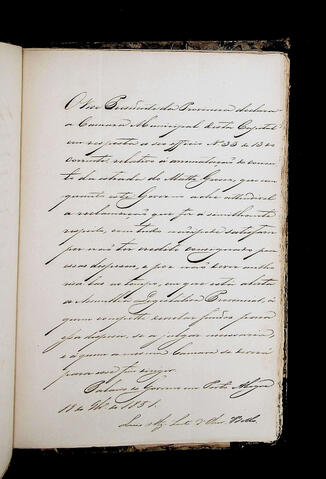 O Vice Presidente da Provincia declara
a Camara Municipal desta Capital
em resposta a seo officio Nº 33 de 13 do
corrente, relativo á arrematação do
da estrada do Matto Grosso, que em
quanto este Governo ache attendivel
a reclamação que faz a semelhante
respeito, com tudo não pode satisfazer
por não ter credito consignado para
essas despesas, e por não
em que esta aberta
a Assemblea Legislativa Provincial, á
quem compete decretar fundos para
despesa, se a julgar necessaria,
e á quem a mesma Camara se deverá
para esse fim dirigir.
Palacio do Governo em Porto Alegre
de 1851.
Luis Alz. Leite d'Oliv. Bello.